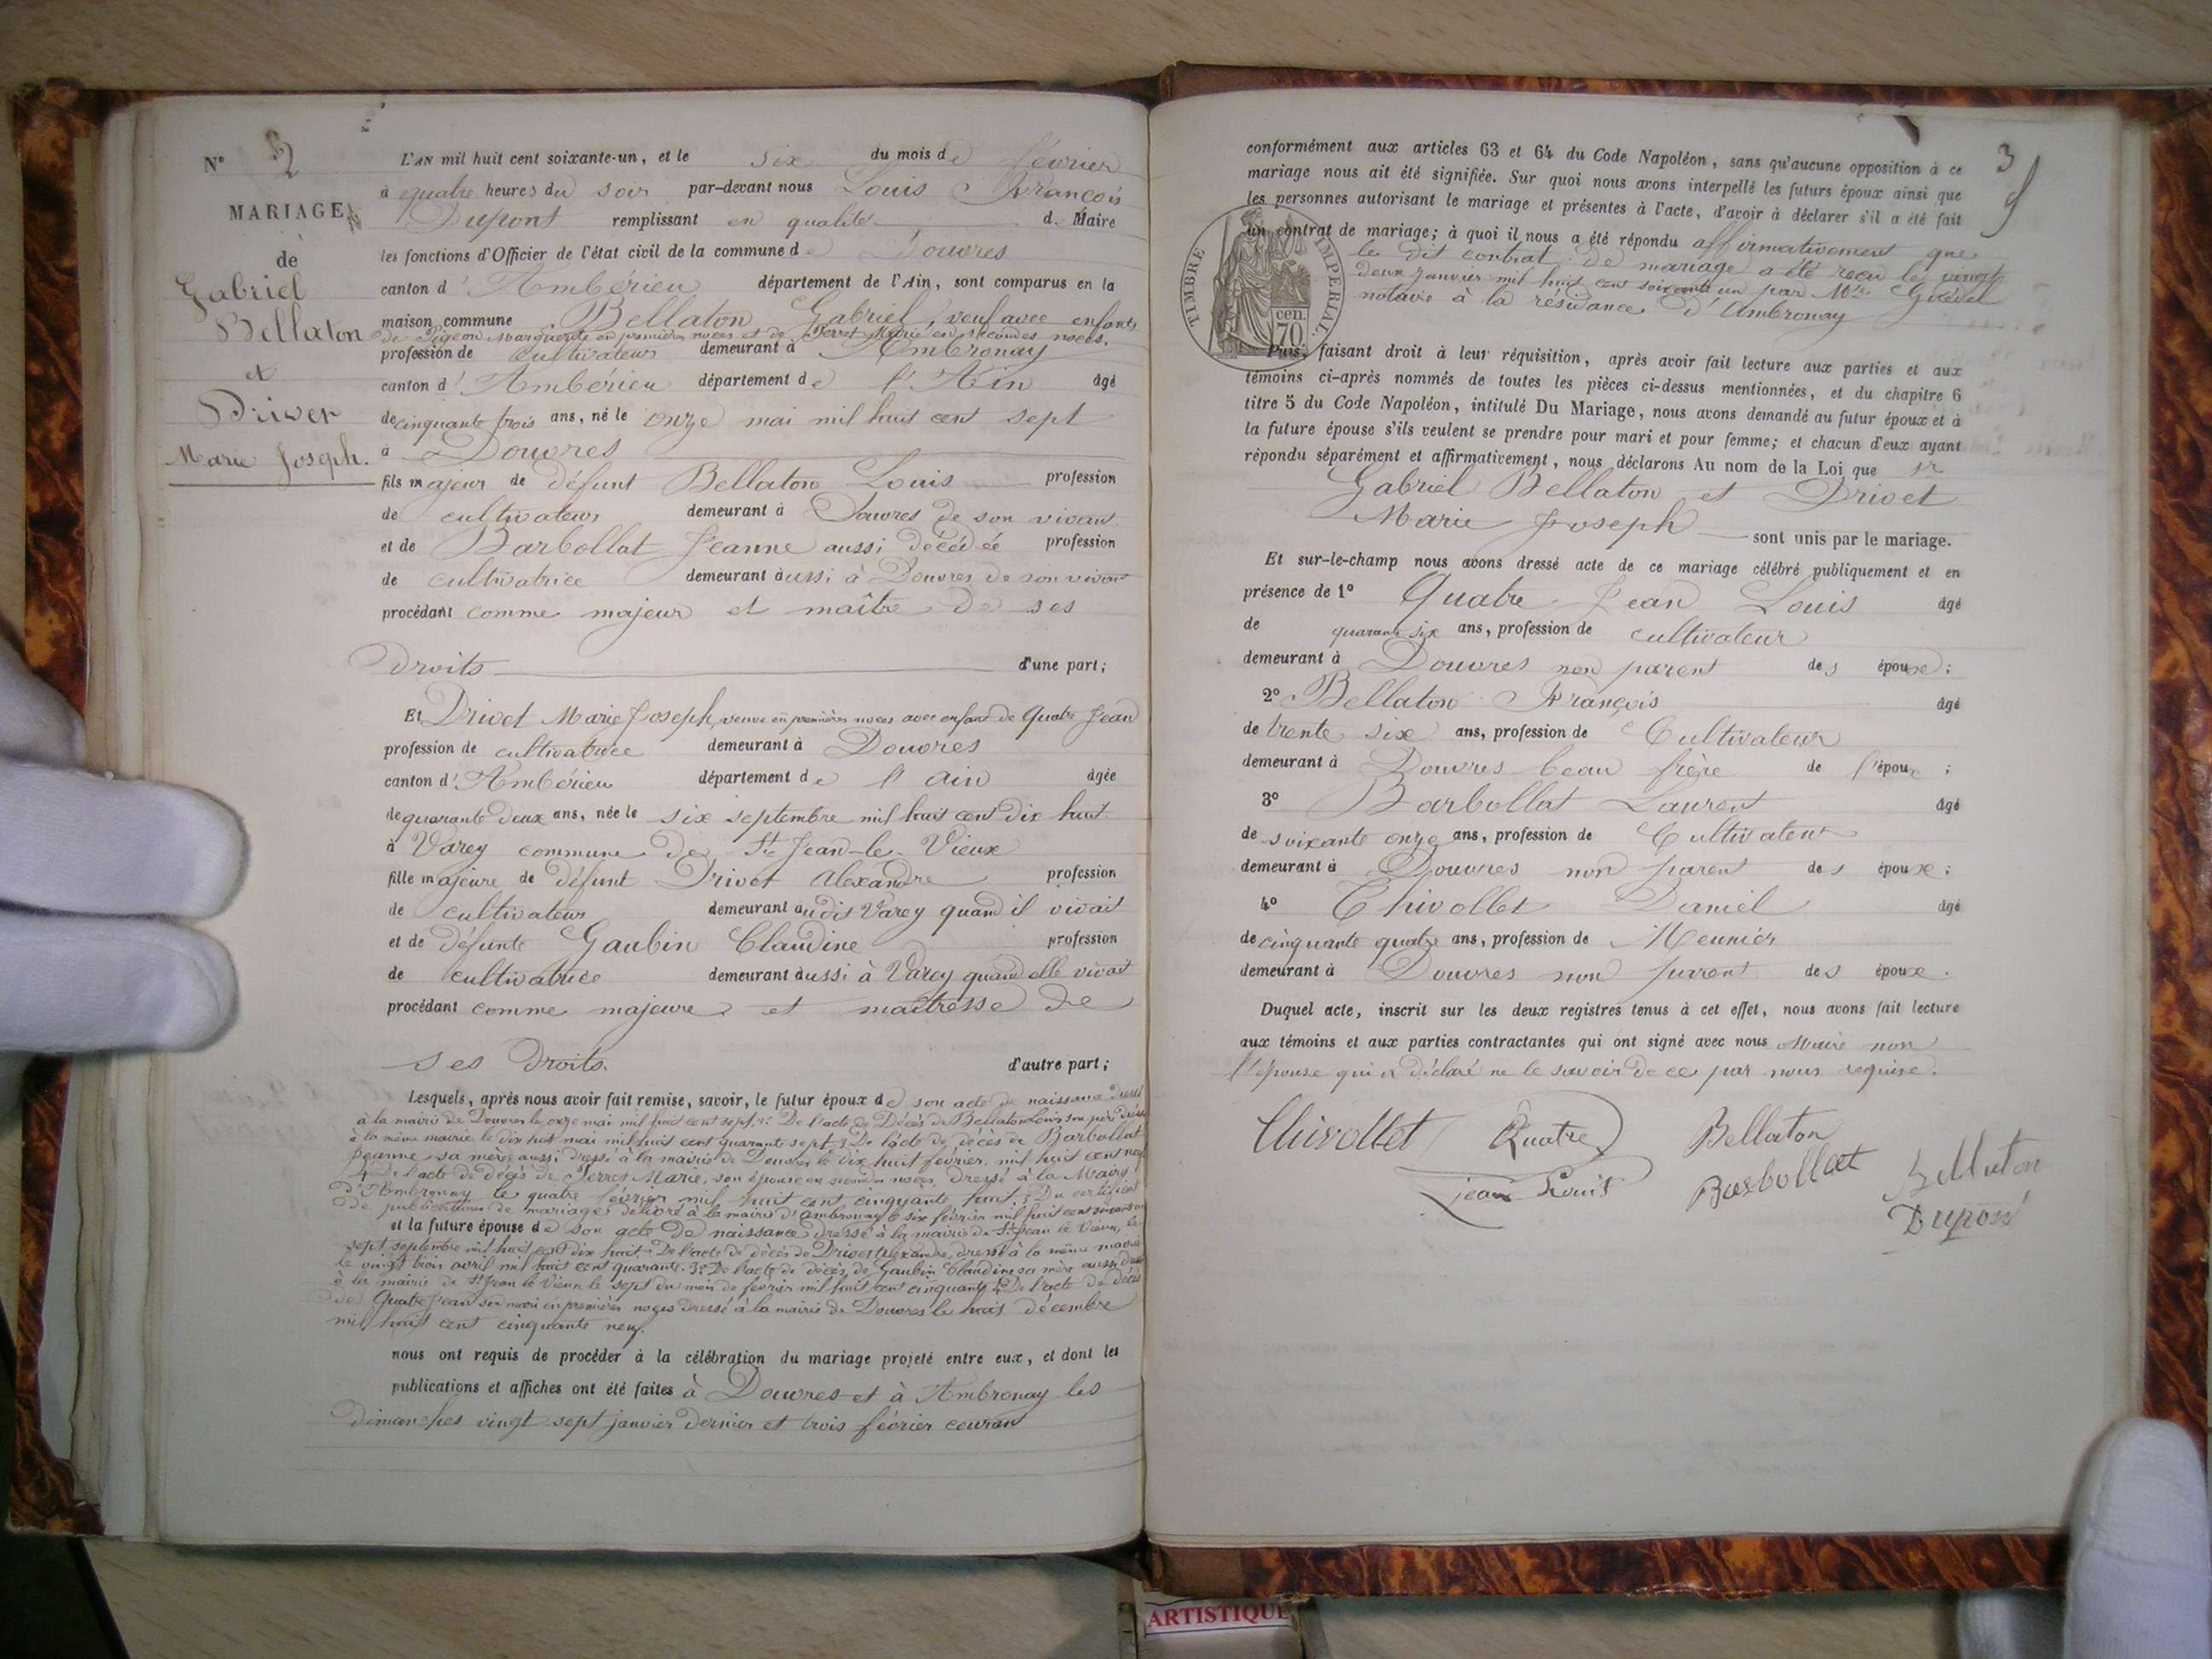 N° 2
MARIAGE
de
Gabriel
Bellaton
et
Driver
Marie Joseph.
L'AN mil huit cent soixante-un, et le six du mois de février
à quatre heures du soir par-devant nous Louis François
Dupont remplissant en qualité de Maire
les fonctions d'Officier de l'état civil de la commune de Douvres
canton d'Ambérieu département de l'Ain, sont comparus en la
maison commune Bellaton Gabriel, veuf avec enfants
de Pigeon Marguerite en premières noces et de Perret Marie en secondes noces.
profession de cultivateur demeurant à Ambronay
canton d'Ambérieu département de l'Ain âgé
de cinquante trois ans, né le onze mai mil huit cent sept
à Douvres
fils majeur de défunt Bellaton Louis profession
de cultivateur demeurant à Douvres de son vivant
et de Barbollat Jeanne aussi décédée profession
de cultivatrice demeurant aussi à Douvres de son vivant
procédant comme majeur et maître de ses
droits d'une part;
Et Drivet Marie Joseph, veuve en premières noces avec enfant de Quatre Jean
profession de cultivatrice demeurant à Douvres
canton d'Ambérieu département de l'ain âgée
de quarante deux ans, née le six septembre mil huit cent dix huit
à Varey commune de St Jean-le-Vieux
fille majeure de défunt Drivet Alexandre profession
de cultivateur demeurant audit Varey quand il vivait
et de défunte Gaubin Claudine profession
de cultivatrice demeurant aussi à Varey quand elle vivait
procédant comme majeure et maîtresse de
ses droits. d'autre part;
Lesquels, après nous avoir fait remise, savoir, le futur époux de son acte de naissance dressé
à la mairie de Douvres le onze mai mil huit cent sept. 2° De l'acte de Décès de Bellaton Louis son père dressé
à la même mairie le dix huit mai mil huit cent quarante sept 3° De l'acte de décès de Barbollat
Jeanne sa mère aussi dressé à la mairie de Douvres le dix huit février mil huit cent neuf
4° De l'acte de décès de Perret Marie, son épouse en secondes noces, dressé à la Mairie
d'Ambronay le quatre février mil huit cent cinquante huit. 5° Du certificat
de publications de mariages délivré à la mairie d'Ambronay le six février mil huit cent soixante un
et la future épouse de son acte de naissance dressé à la mairie de St Jean le Vieux, le
sept septembre mil huit cent dix huit. 2° De l'acte de décès de Drivet Alexandre, dressé à la même mairie
le vingt trois avril mil huit cent quarante. 3° De l'acte de décès de Gaubin Claudine sa mère aussi dressé
à la mairie de St Jean le Vieux le sept du mois de février mil huit cent cinquante 4° De l'acte de décès
de Quatre Jean son mari en premières noces dressé à la mairie de Douvres le huit décembre
mil huit cent cinquante neuf.
nous ont requis de procéder à la célébration du mariage projeté entre eux, et dont les
publications et affiches ont été faites à Douvres et à Ambronay les
dimanches vingt sept janvier dernier et trois février courant
3
conformément aux articles 63 et 64 du Code Napoléon, sans qu'aucune opposition à ce
mariage nous ait été signifiée. Sur quoi nous avons interpellé les futurs époux ainsi que
les personnes autorisant le mariage et présentes à l'acte, d'avoir à déclarer s'il a été fait
un contrat de mariage; à quoi il nous a été répondu affirmativement que
le dit contrat de mariage a été reçu le vingt
deux janvier mil huit cent soixante un par Mtre
notaire à la résidence d'Ambronay
TIMBRE IMPÉRIAL
70 cen.
Puis, faisant droit à leur réquisition, après avoir fait lecture aux parties et aux
témoins ci-après nommés de toutes les pièces ci-dessus mentionnées, et du chapitre 6
titre 5 du Code Napoléon, intitulé Du Mariage, nous avons demandé au futur époux et à
la future épouse s'ils veulent se prendre pour mari et pour femme; et chacun d'eux ayant
répondu séparément et affirmativement, nous déclarons Au nom de la Loi que sr
Gabriel Bellaton et Drivet
Marie Joseph sont unis par le mariage.
Et sur-le-champ nous avons dressé acte de ce mariage célébré publiquement et en
présence de 1° Quatre Jean Louis âgé
de quarante six ans, profession de cultivateur
demeurant à Douvres non parent des époux;
2° Bellaton François âgé
de trente six ans, profession de Cultivateur
demeurant à Douvres beau frère de l'époux;
3° Barbollat Laurent âgé
de soixante onze ans, profession de Cultivateur
demeurant à Douvres non parent des époux;
4° Thivollet Daniel âgé
de cinquante quatre ans, profession de Meunier
demeurant à Douvres non parent des époux.
Duquel acte, inscrit sur les deux registres tenus à cet effet, nous avons fait lecture
aux témoins et aux parties contractantes qui ont signé avec nous Maire non
l'épouse qui a déclaré ne le savoir de ce par nous requise.
Thivollet Quatre Bellaton
jean Louis Barbollat Bellaton
Dupont
ARTISTIQUE